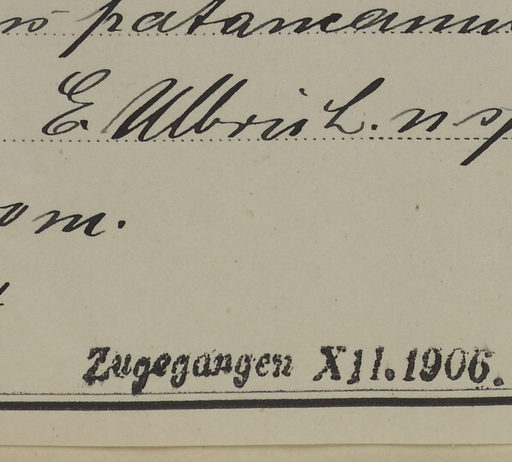 patamanu
E Ulbrich. n sp
om.
Zugegangen XII.1906.